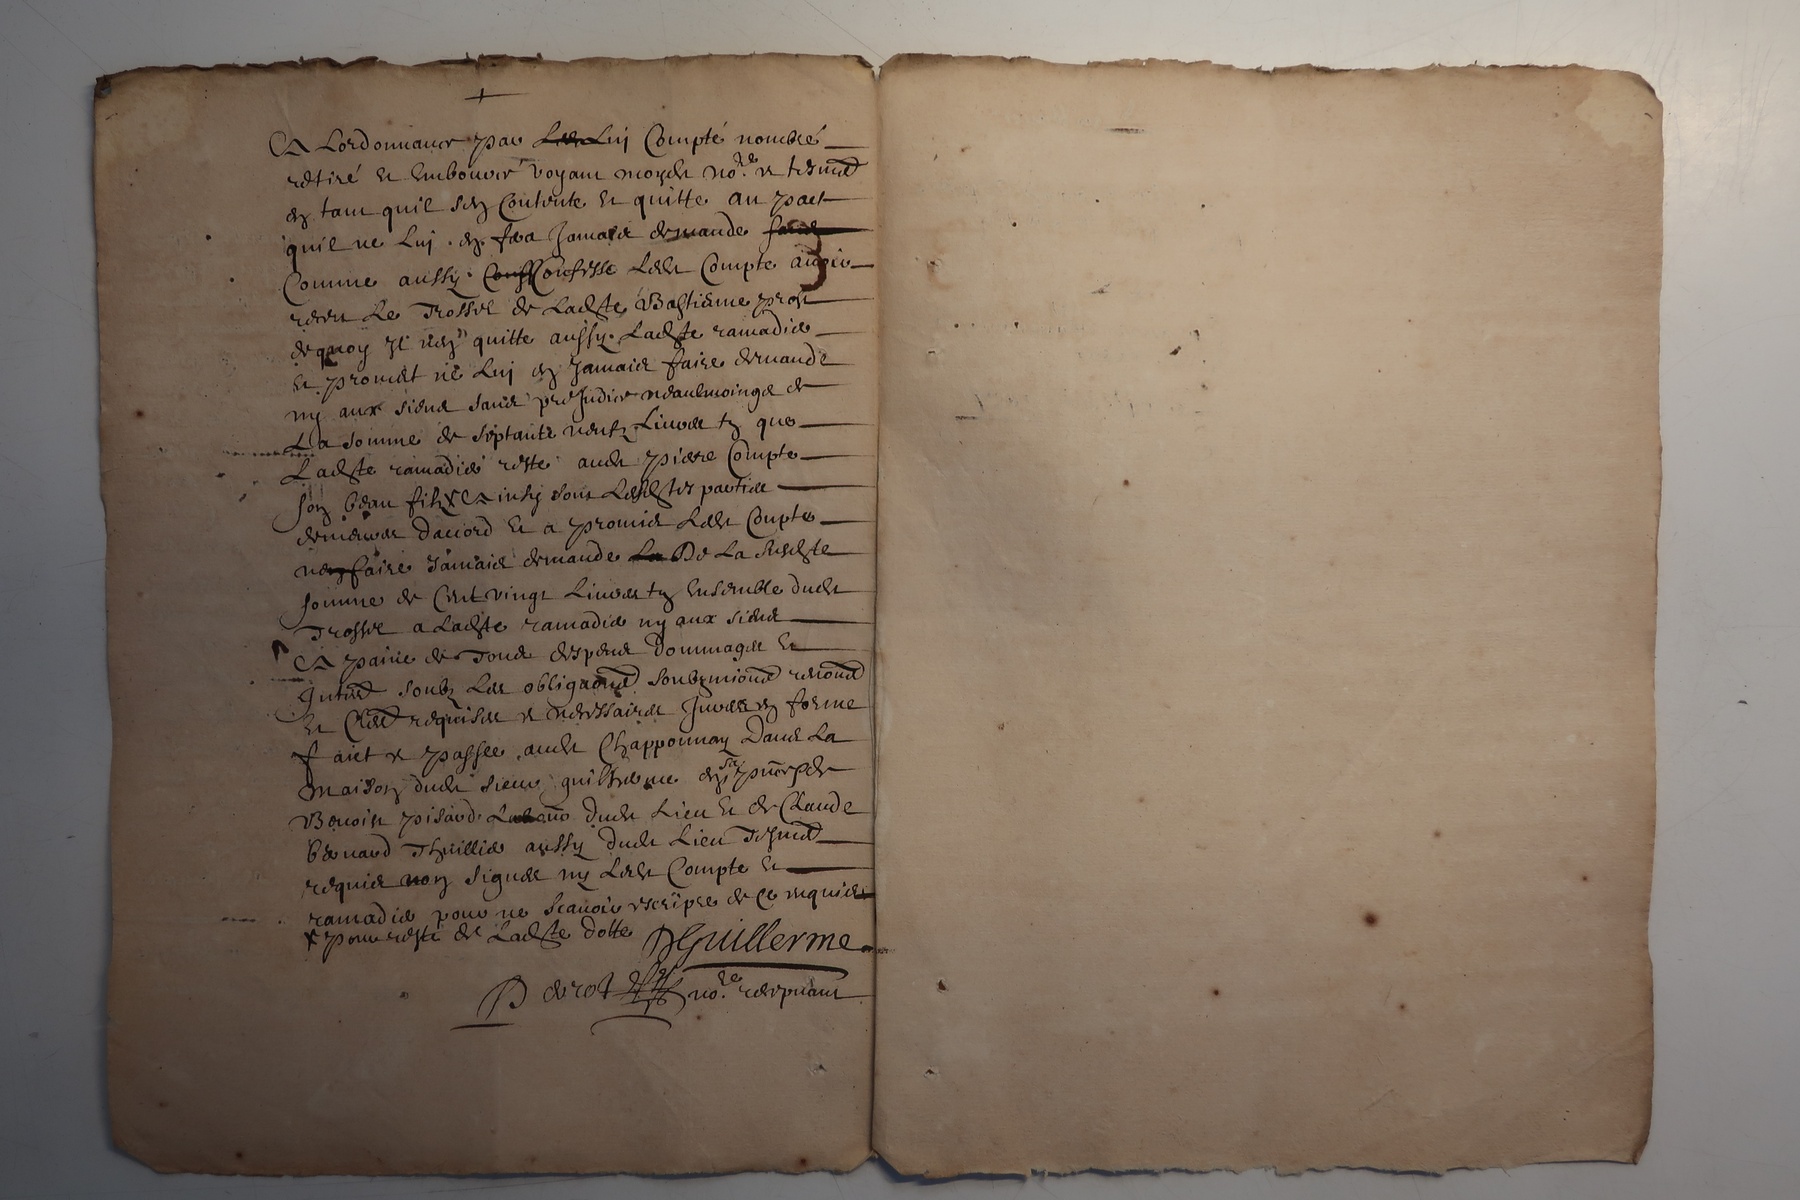 A Lordonnance par Luy Compté nombré
retiré et Emboursé voyant moydit no.re et tesmoins
en tant quil sen Contente et quitte au pact
quil ne Luy en fera Jamais demande
Comme aussy Confesse Ledit Compte avoir
receu Le Trossel de Ladite Bastienne
dequoy Il quitte aussy Ladite ramadie
et promet ne Luy en Jamais faire demande
ny aux siens sans preJudice neaulmoings de
La somme de septante neufz Livres tz que
Ladite ramadie reste audit pierre Compte
son beau filz x Ainsy sont Lesdites parties
demeures daccord et a promis Ledit Compte
nen faire Jamais demande De La susdite
somme de Cent vingt Livres tz Ensemble dudit
Trossel a Ladite ramadie ny aux siens
A paine de Tous despens dommages et
Interestz soubz Les obligaons soubzmions renons
et Clauses requises et necessaires Jurees en forme
faict et passee audit Chapponnay Dans La
maison dudit sieur guilherme
Benoist pisard dudit Lieu et de Claude
bernard Thuillie aussy dudit Lieu Tesmoins
requis non signes ny Ledit Compte et
ramadie pour ne scavoir escripre de ce requis
x pour reste de Ladite dotte Guillerme
no.re recepvant